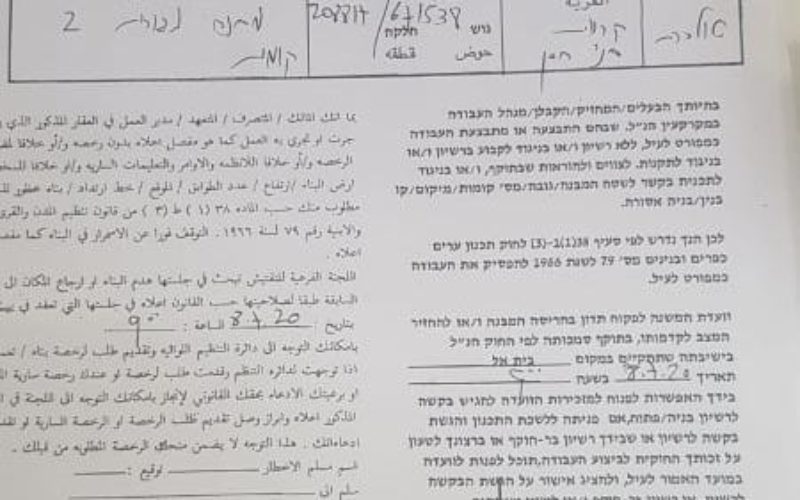 מתחם מגורים 2
208814/671538
גוש
חלקה
קומות
حوض قطعة
القرية
בהיותך הבעלים/המחזיק/הקבלן/מנהל העבודה
במקרקעין הנ״ל, שבהם התבצעה או מתבצעת העבודה
כמפורט לעיל, ללא רשיון ו/או בניגוד לקבוע ברשיון ו/או
בניגוד לתקנות, לצווים ולהוראות שבתוקף, ו/או בניגוד
לתכנית בקשר לשטח המבנה/גובה/מס׳ קומות/מיקום/קו
בנין/בניה אסורה.
לכן הנך נדרש לפי סעיף 38(1)ב-(3) לחוק תכנון ערים
כפרים ובנינים מס׳ 79 לשנת 1966 להפסיק את העבודה
כמפורט לעיל.
וועדת המשנה לפקוח תדון בהריסת המבנה ו/או להחזיר
המצב לקדמותו, בתוקף סמכותה לפי החוק הנ״ל
בישיבתה שתתקיים במקום בית אל
תאריך 8.7.20 בשעה
בידך האפשרות לפנות למזכירות הוועדה להגיש בקשה
לרשיון בניה/פתוח, אם פניתה ללשכת התכנון והגשת
בקשה לרשיון או שבידך רשיון בר-תוקף או ברצונך לטעון
על זכותך החוקית לביצוע העבודה, תוכל לפנות לוועדה
במועד האמור לעיל, ולהציג אישור על הגשת הבקשה
بما انك المالك / المتصرف / المتعهد / مدير العمل في العقار المذكور الذي
جرت او تجري به العمل كما هو مفصل اعلاه بدون رخصه و/أو خلافا
الرخصه و/أو خلافا للانظمه والاوامر والتعليمات الساريه و/او خلافا
ارض البناء /ارتفاع / عدد الطوابق / الموقع / خط ارتداد / بناء محظور
مطلوب منك حسب الماده ٣٨ (١) ط (٣) من قانون تنظيم المدن والقرى
والابنية رقم ٧٩ لسنة ١٩٦٦ . التوقف فورا عن الاستمرار في البناء كما
اعلاه .
اللجنة الفرعية للتفتيش تبحث في جلستها هدم البناء او ارجاع المكان الى
السابقة طبقا لصلاحيتها حسب القانون اعلاه في جلستها التي تعقد في
بتاريخ : 8.7.20 الساعة : 9⁰⁰
بامكانك التوجه الى دائرة التنظيم اللوائيه وتقديم طلب لرخصة بناء /
اذا توجهت لدائره التنظيم وقدمت طلب لرخصة او عندك رخصة سارية
او برغبتك الادعاء بحقك القانوني لإنجاز بامكانك التوجه الى اللجنة في
المذكور اعلاه وابراز وصل تقديم طلب الرخصة او الرخصة السارية او
ادعاءاتك . هذا التوجه لا يضمن منحك الرخصة المطلوبه من قبلك .
اسم مسلم الاخطار توقيع :
سلم الى